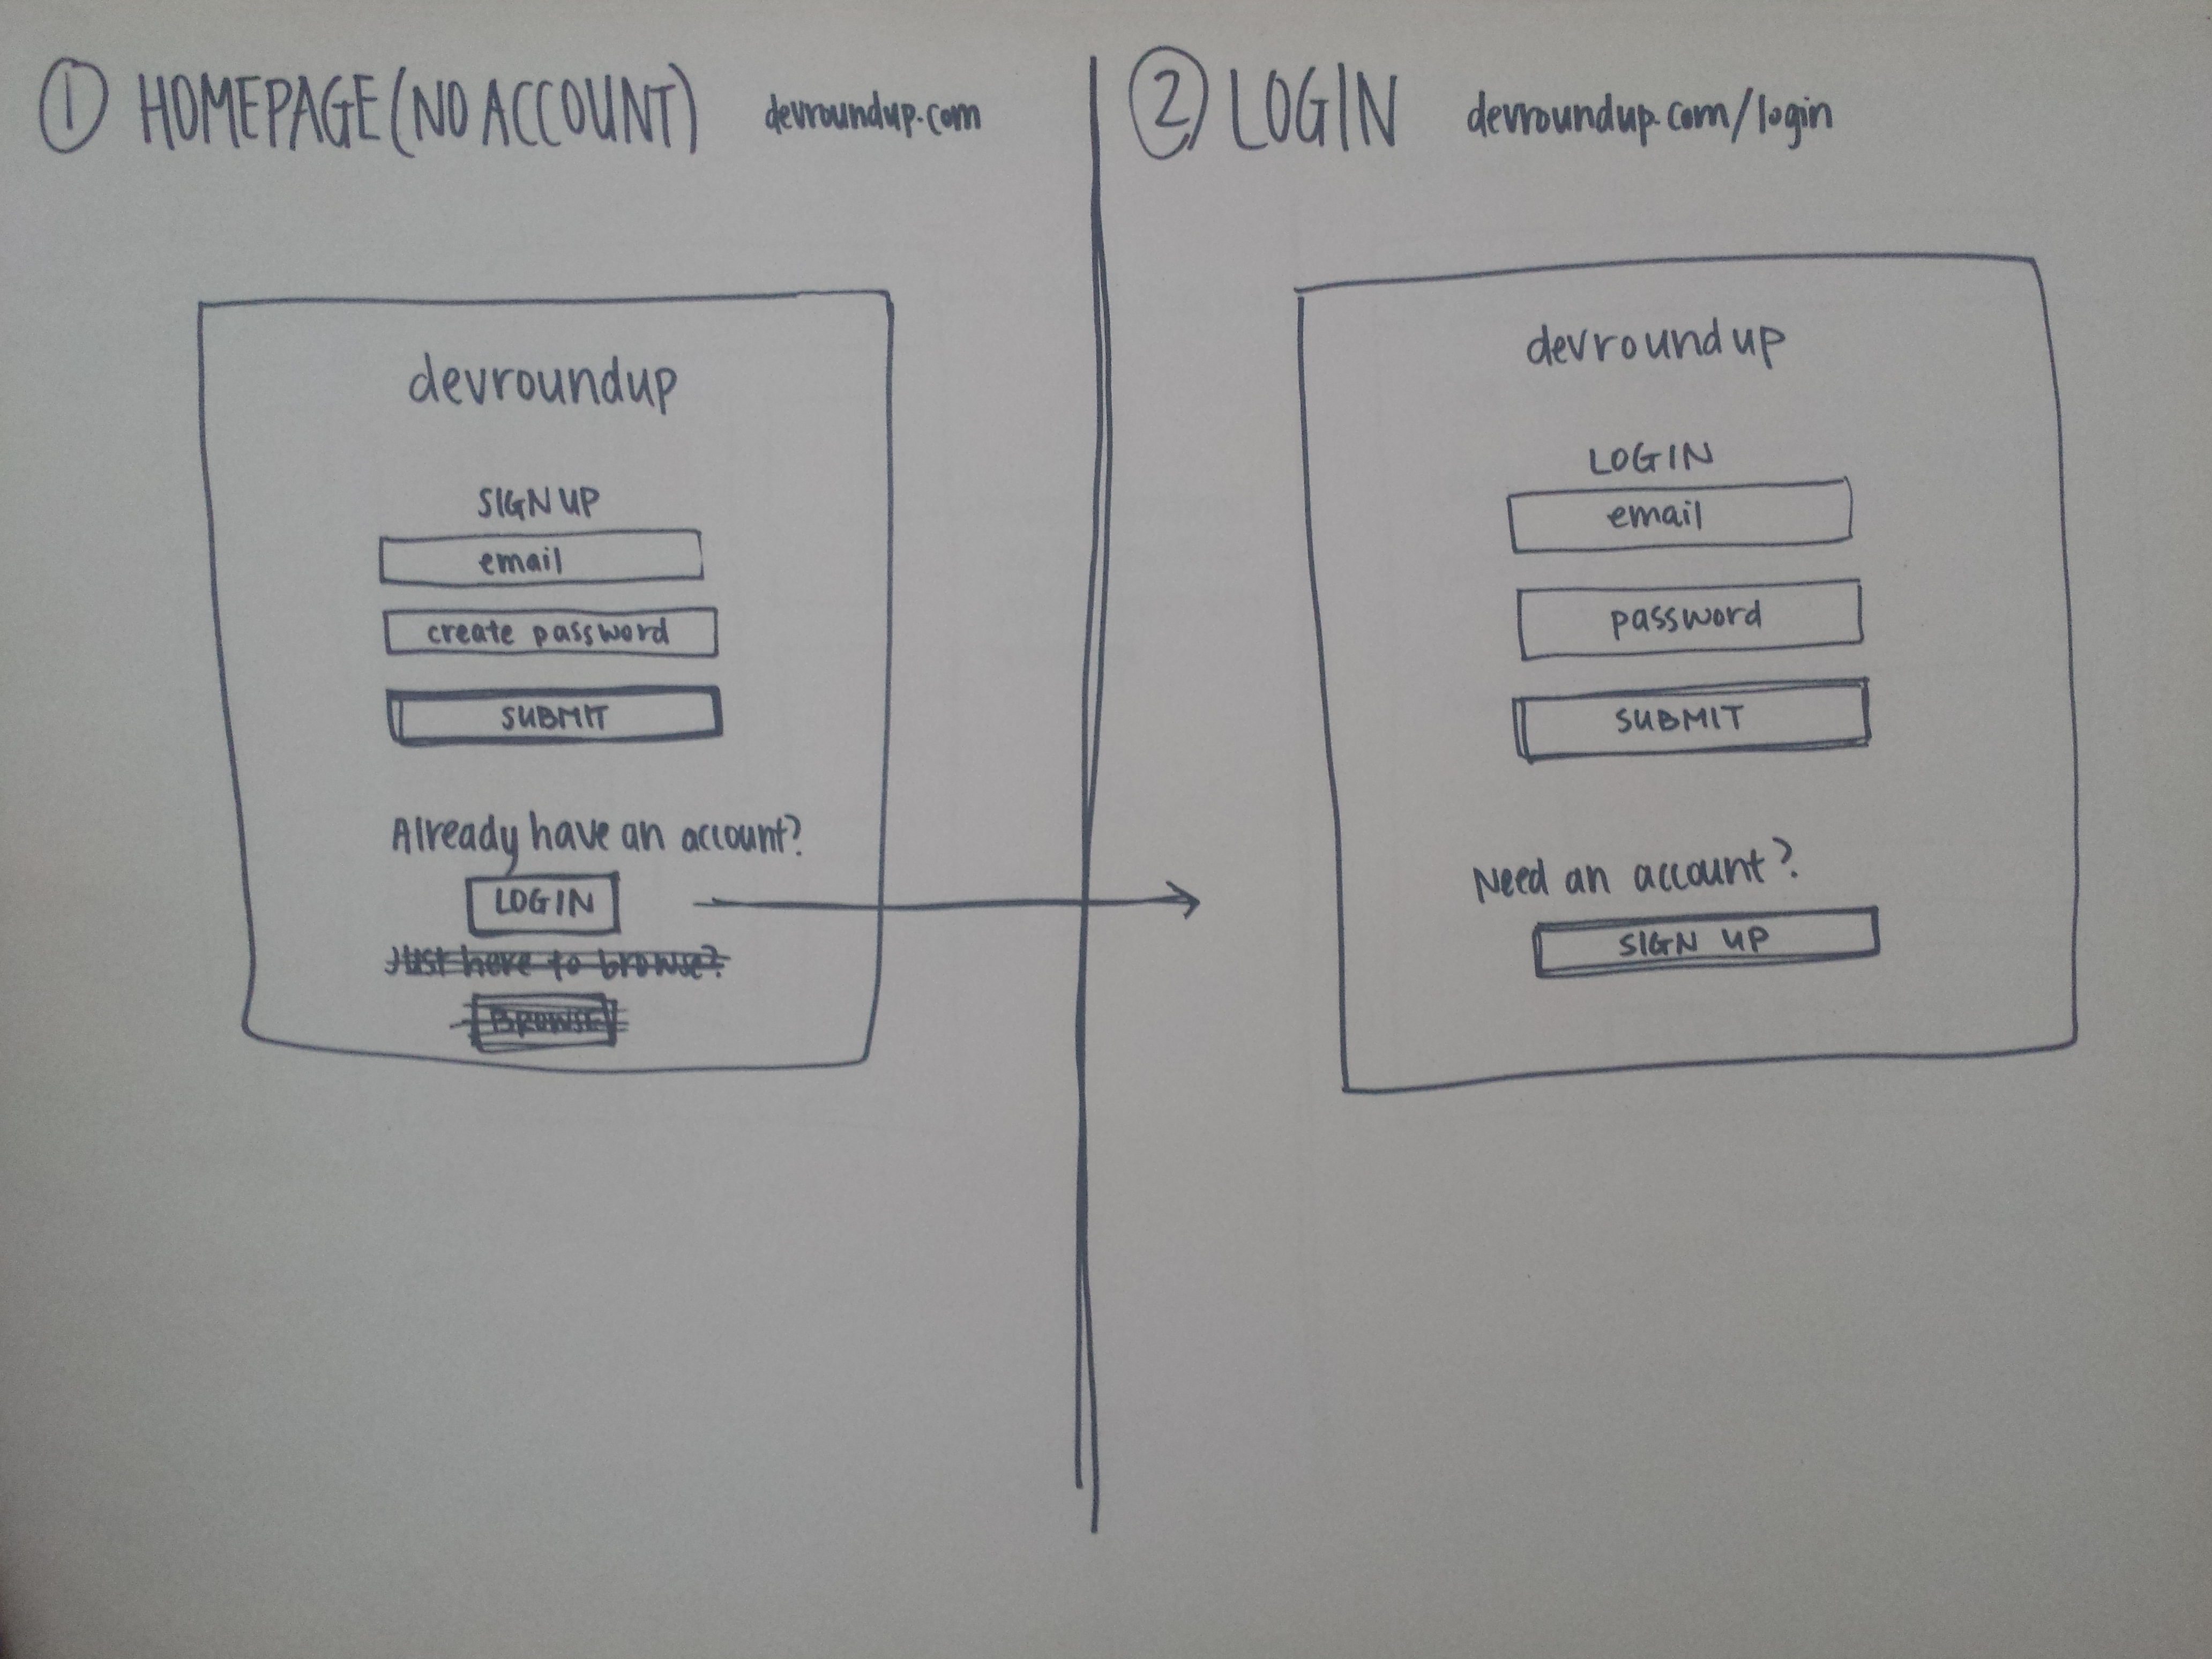 ① HOMEPAGE (NO ACCOUNT) devroundup.com
devroundup
SIGN UP
email
create password
SUBMIT
Already have an account?
LOGIN
Just here to browse?
BROWSE
② LOGIN devroundup.com/login
devroundup
LOGIN
email
password
SUBMIT
Need an account?
SIGN UP